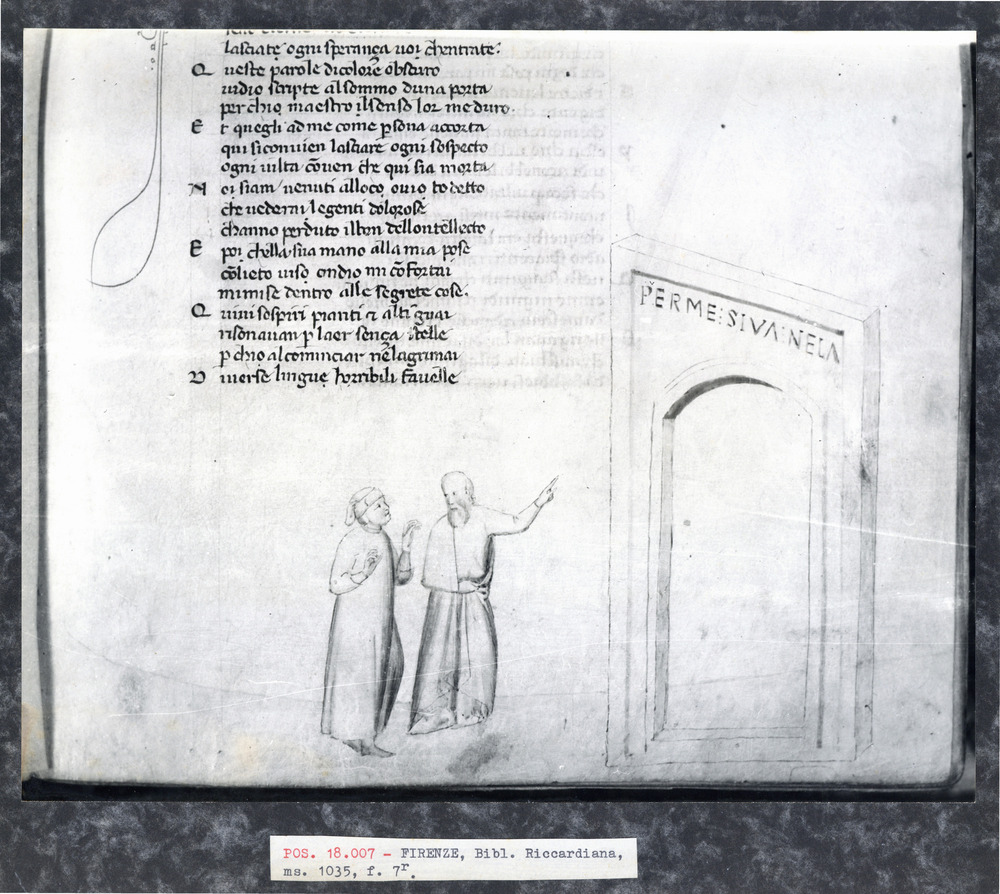 lasciate ogni sperança uoi chentrate:
Q ueste parole dicolore obscuro
uidio scripte alsommo duna porta
per chio maestro ilsenso lor me duro.
E t quegli ad me come psona accorta
qui siconuien lasciare ogni sospecto
ogni uilta cōuen che qui sia morta
N oi siam uenuti alloco ouio to detto
che uederai legenti dolorose
channo perduto ilben dellontellecto
E poi chella sua mano alla mia pose
cōlieto uiso ondio mi cōfortai
mi mise dentro alle segrete cose.
Q uiui sospiri pianti & alti guai
risonauan p laer sença stelle
p chio alcominciar nē lagrimai
D iuerse lingue horribili fauelle
PERME:SIVA:NELA
POS. 18.007 - FIRENZE, Bibl. Riccardiana,
ms. 1035, f. 7r.